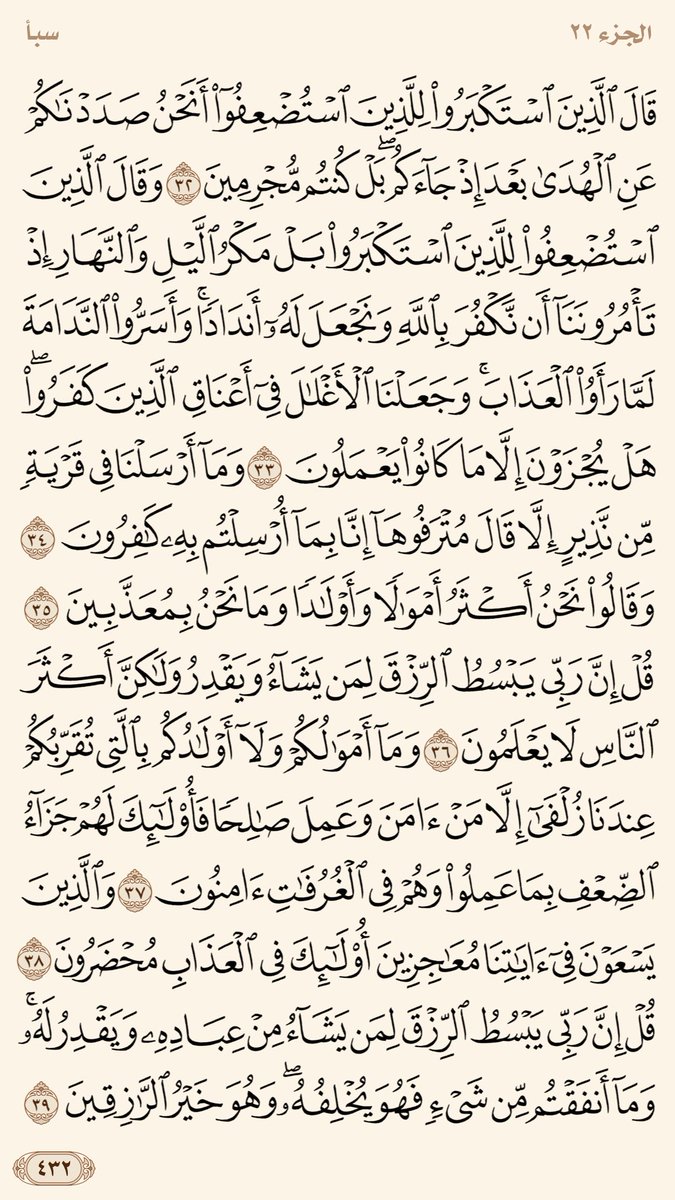 الجزء ٢٢
سبأ
قَالَ ٱلَّذِينَ ٱسۡتَكۡبَرُواْ لِلَّذِينَ ٱسۡتُضۡعِفُوٓاْ أَنَحۡنُ صَدَدۡنَٰكُمۡ
عَنِ ٱلۡهُدَىٰ بَعۡدَ إِذۡ جَآءَكُمۖ بَلۡ كُنتُم مُّجۡرِمِينَ ٣٢ وَقَالَ ٱلَّذِينَ
ٱسۡتُضۡعِفُواْ لِلَّذِينَ ٱسۡتَكۡبَرُواْ بَلۡ مَكۡرُ ٱلَّيۡلِ وَٱلنَّهَارِ إِذۡ
تَأۡمُرُونَنَآ أَن نَّكۡفُرَ بِٱللَّهِ وَنَجۡعَلَ لَهُۥٓ أَندَادٗاۚ وَأَسَرُّواْ ٱلنَّدَامَةَ
لَمَّا رَأَوُاْ ٱلۡعَذَابَۚ وَجَعَلۡنَا ٱلۡأَغۡلَٰلَ فِيٓ أَعۡنَاقِ ٱلَّذِينَ كَفَرُواْۖ
هَلۡ يُجۡزَوۡنَ إِلَّا مَا كَانُواْ يَعۡمَلُونَ ٣٣ وَمَآ أَرۡسَلۡنَا فِي قَرۡيَةٖ
مِّن نَّذِيرٍ إِلَّا قَالَ مُتۡرَفُوهَآ إِنَّا بِمَآ أُرۡسِلۡتُم بِهِۦ كَٰفِرُونَ ٣٤
وَقَالُواْ نَحۡنُ أَكۡثَرُ أَمۡوَٰلٗا وَأَوۡلَٰدٗا وَمَا نَحۡنُ بِمُعَذَّبِينَ ٣٥
قُلۡ إِنَّ رَبِّي يَبۡسُطُ ٱلرِّزۡقَ لِمَن يَشَآءُ وَيَقۡدِرُ وَلَٰكِنَّ أَكۡثَرَ
ٱلنَّاسِ لَا يَعۡلَمُونَ ٣٦ وَمَآ أَمۡوَٰلُكُمۡ وَلَآ أَوۡلَٰدُكُم بِٱلَّتِي تُقَرِّبُكُمۡ
عِندَنَا زُلۡفَىٰٓ إِلَّا مَنۡ ءَامَنَ وَعَمِلَ صَٰلِحٗا فَأُوْلَٰٓئِكَ لَهُمۡ جَزَآءُ
ٱلضِّعۡفِ بِمَا عَمِلُواْ وَهُمۡ فِي ٱلۡغُرُفَٰتِ ءَامِنُونَ ٣٧ وَٱلَّذِينَ
يَسۡعَوۡنَ فِيٓ ءَايَٰتِنَا مُعَٰجِزِينَ أُوْلَٰٓئِكَ فِي ٱلۡعَذَابِ مُحۡضَرُونَ ٣٨
قُلۡ إِنَّ رَبِّي يَبۡسُطُ ٱلرِّزۡقَ لِمَن يَشَآءُ مِنۡ عِبَادِهِۦ وَيَقۡدِرُ لَهُۥۚ
وَمَآ أَنفَقۡتُم مِّن شَيۡءٖ فَهُوَ يُخۡلِفُهُۥۖ وَهُوَ خَيۡرُ ٱلرَّٰزِقِينَ ٣٩
٤٣٢